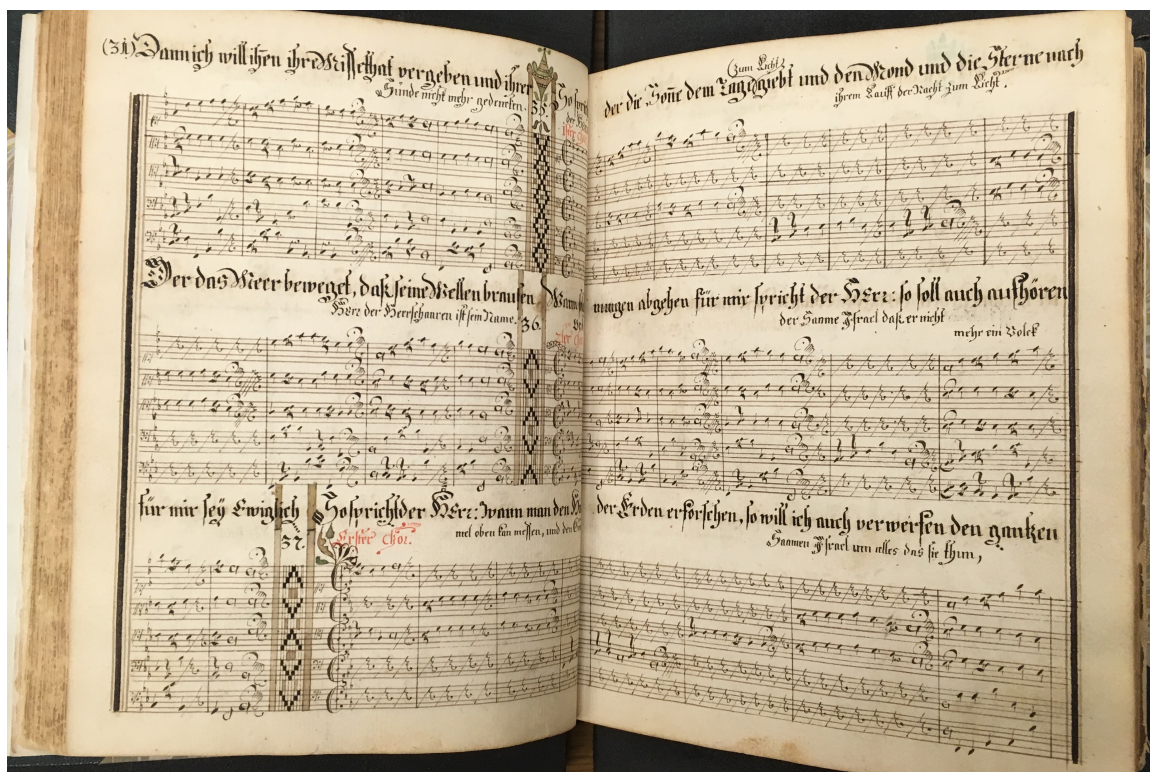 (34) Dann ich will ihen ihre Missethat vergeben und ihrer
Sünde nicht mehr gedencken.
35.
So sprich
der
(Zum Licht)
der die Soñe dem Tag giebt und den Mond und die Sterne nach
ihrem Lauff der Nacht zum Licht.
Der das Meer beweget, daß seine Wellen brausen
HErr der Heerschaaren ist sein Name.
36.
Wann
nungen abgehen für mir spricht der HErr: so soll auch aufhören
der Saame Jsrael daß er nicht
mehr ein Volck
für mir sey Ewiglich
37.
So spricht der HErr: Wann man den
Erster Chor.
mel oben kan messen, und den
der Erden erforschen, so will ich auch verwerfen den gantzen
Saamen Jsrael um alles das sie thun,